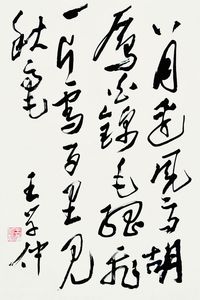 八月邊風高胡
鷹白錦毛孤飛
一片雪百里見
秋毫
王学仲